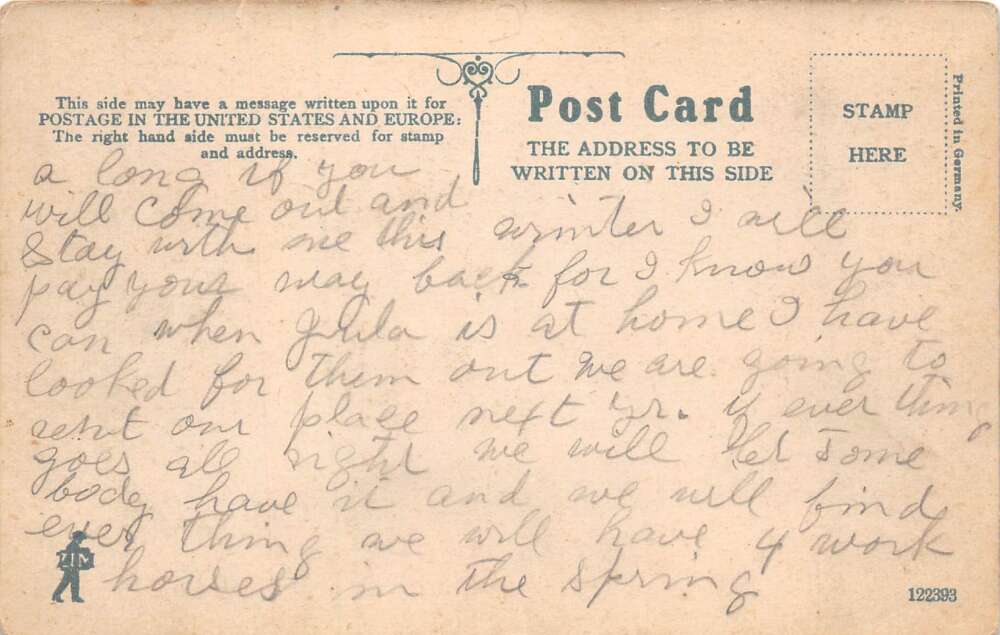 This side may have a message written upon it for
POSTAGE IN THE UNITED STATES AND EUROPE:
The right hand side must be reserved for stamp
and address.
Post Card
THE ADDRESS TO BE
WRITTEN ON THIS SIDE
STAMP
HERE
Printed in Germany.
a long if you
will come out and
Stay with me this winter I will
pay your way back for I know you
can when is at home I have
looked for them out we are going to
rent our place next yr. if ever thing
goes all right we will let some
body have it and we will find
ever thing we will have 4 work
horses in the spring
ZIM
122393